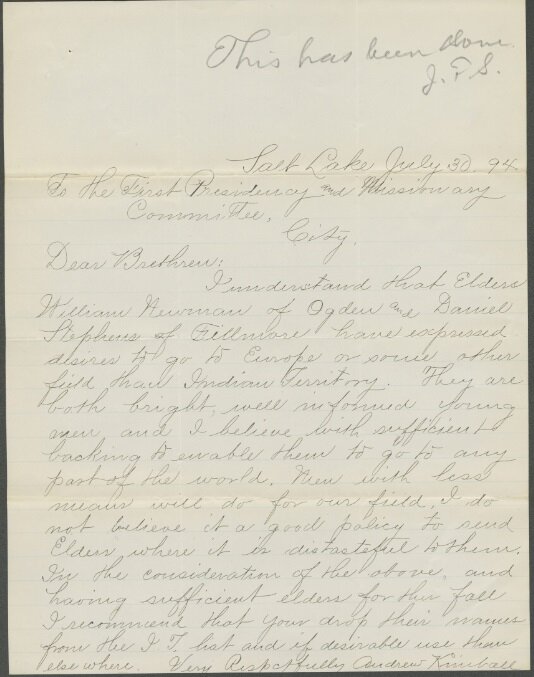 This has been done.
J. F. S.
Salt Lake July 30. 94
To the First Presidency and Missionary
Committee,
City.
Dear Brethren:
I understand that Elders
William Newman of Ogden and Daniel
Stephens of Fillmore have expressed
desires to go to Europe or some other
field than Indian Territory. They are
both bright, well informed young
men, and I believe with sufficient
backing to enable them to go to any
part of the world. Men with less
means will do for our field. I do
not believe it a good policy to send
Elders where it is distasteful to them.
In the consideration of the above, and
having sufficient elders for this fall
I recommend that your drop their names
from the I. T. list and if desirable use than
else where. Very Respctfully Andrew Kimball